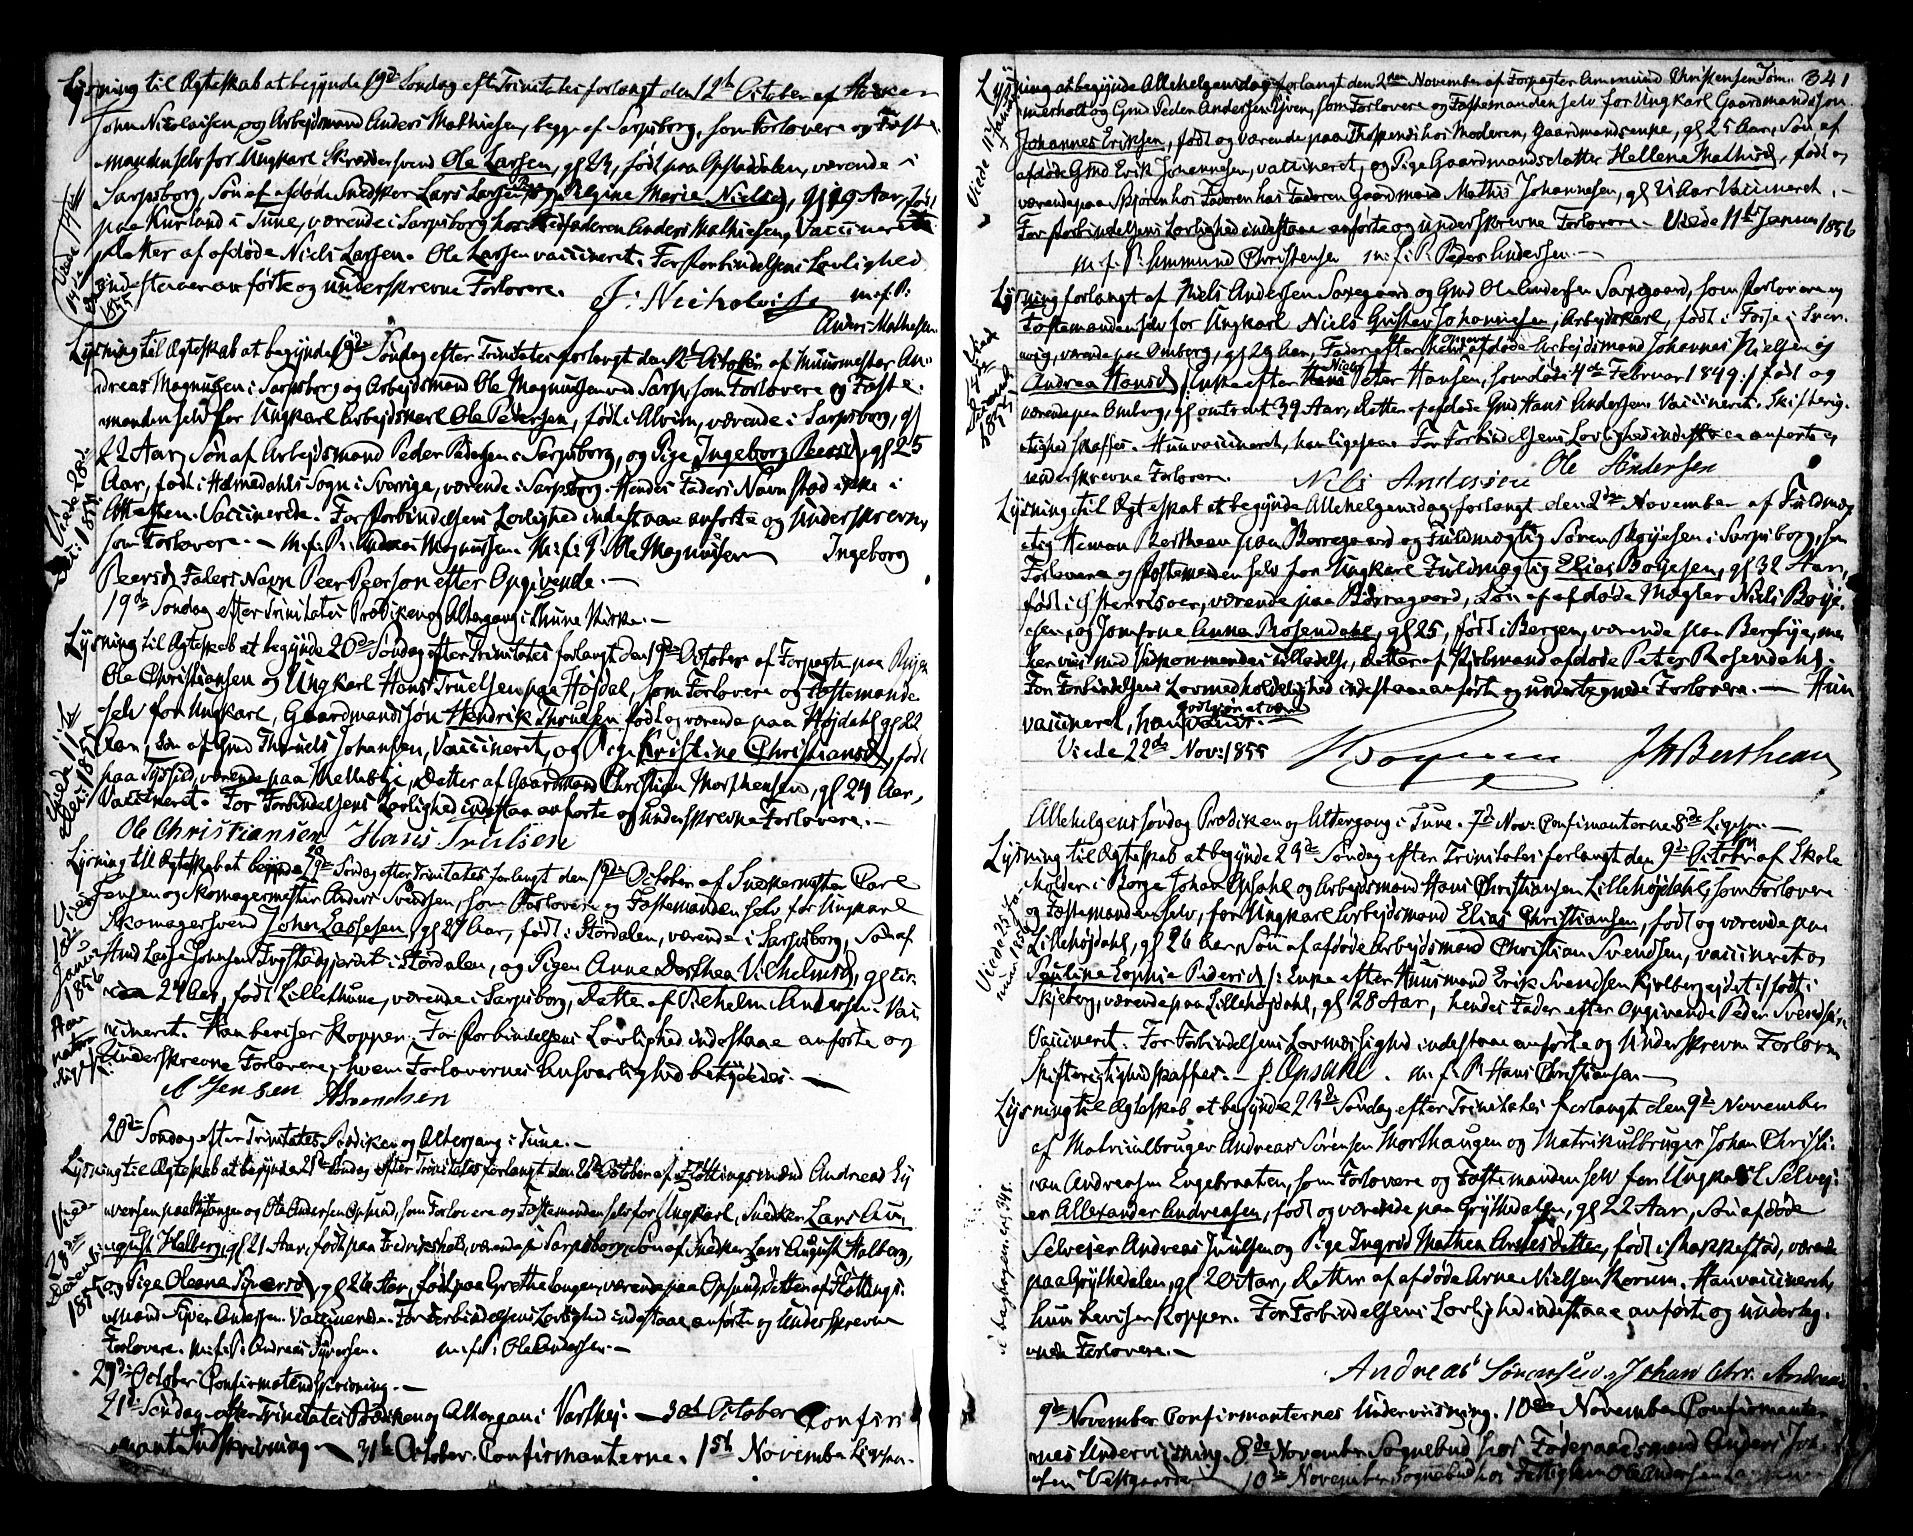 Lysning til Ægteskab at begynde 19de Søndag efter Trinitatis forlangt den 12te October af
John Nicolaisen og Arbejdsmand Anders Mathiesen, begge af Sarpsborg, som Forlovere og Fæste-
manden selv for Ungkarl Skræddersvend Ole Larsen, gl 24, født paa Opstaddalen, værende i
Sarpsborg, Søn af afdøde Snedker Lars Larsen og Pige Marie Nielsd, gl 19 Aar, født
paa Kurland i Tune, værende i Sarpsborg hos Stedfaderen Anders Mathiesen, Vaccineret
Datter af afdøde Niels Larsen. Ole Larsen vaccineret. For Forbindelsens Lovlighed
indestaaer anførte og underskrevne Forlovere. m. f. P.
Anders Mathiesen
Viede 14de 1855
Lysning til Ægteskab at begynde 19de Søndag efter Trinitatis forlangt den 12te October af Muurmester An-
dreas Magnussen i Sarpsborg og Arbejdsmand Ole Magnussen ved Sarp, som Forlovere og Fæste-
manden selv for Ungkarl Arbejdskarl Ole Pedersen, født i Alvim, værende i Sarpsborg, gl
22 Aar, Søn af Arbejdsmand Peder Pedersen i Sarpsborg, og Pige Ingeborg Peersd, gl 25
Aar, født i Holmedahls Sogn i Sverrige, værende i Sarpsborg. Hendes Faders Navn stod ikke i
Attesten. Vaccinerede. For Forbindelsens Lovlighed indestaae anførte og Underskrevne
som Forlovere. — m. f. P. Andreas Magnussen. m. f. P. Ole Magnussen Ingeborg
Peersd Faders Navn Peer Peerson efter Opgivende. —
Viede 28de Dec: 1855
19de Søndag efter Trinitatis Prædiken og Altergang i Thune Kirke. —
Lysning til Ægteskab at begynde 20de Søndag efter Trinitatis forlangt den 19de October af Forpagter paa
Ole Christiansen og Ungkarl Hans Truelsen paa Højdal, som Forlovere og Fæstemanden
selv for Ungkarl, Gaardmandssøn Hendrik Thruelsen født og værende paa Højdahl gl 22
Aar, Søn af Gmd Thruels Johansen, Vaccineret, og Pige Kristine Christiansd, født
paa værende paa Datter af Gaardmand Christian Morthensen, gl 24 Aar,
Vaccineret. For Forbindelsens Lovlighed indestaae anførte og Underskrevne Forlovere. —
Ole Christiansen Hans Truelsen
Viede 11te 1855
Lysning til Ægteskab at begynde 20de Søndag efter Trinitatis forlangt den 19de October af Snedkermester Carl
Jensen og Skomagermester Anders Svendsen, som Forlovere og Fæstemanden selv for Ungkarl
Skomagersvend John Lassesen, gl 27 Aar, født i Stordalen, værende i Sarpsborg, Søn af
Hmd Lasse Johnsen i Stordalen, og Pigen Anne Dorthea Vilhelmsd, gl cir-
ca 24 Aar, født Lillethune, værende i Sarpsborg, Datter af Vilhelm Andersen. Vac-
cineret. Han beviser Kopper. For Forbindelsens Lovlighed indestaae anførte og
Underskrevne Forlovere, hvem Forlovernes Ansvarlighed betydedes. —
C Jensen ASvendsen
Viede 18de Janu: 1856
Han naturlige
20de Søndag efter Trinitatis Prædiken og Altergang i Tune. —
Lysning til Ægteskab at begynde 21de Søndag efter Trinitatis forlangt den 26de October af Fløttningsmand Andreas Sy-
versen paa og Ole Andersen Opsund, som Forlovere og Fæstemanden selv for Ungkarl, Snedker Lars Au-
gust Halberg, gl 21 Aar, født paa Fredrikshald, værende i Sarpsborg, Søn af Snedker Lars August Halberg,
og Pige Oleane Syversd, gl 26 Aar, født paa Grethe værende paa Opsund, Datter af Fløttnings-
mand Syver Andersen. Vaccinerede. For Forbindelsens Lovlighed indestaae anførte og Underskrevne
Forlovere. m. f. P. Andreas Syversen. m. f. P. Ole Andersen. —
Viede 28de Decemb: 1855
29de October Confirmationsindskrivning. —
21de Søndag efter Trinitatis Prædiken og Altergang i Varthej. — 30te October Confir-
mant Indskrivning — 31te October. Confirmanterne. 1ste November Ligpræ-
341
Lysning at begynde Allehelgensdag forlangt den 2den November af Forpagter Ammund Christensen Tøm-
merholt og Gmd Peder Andersen som Forlovere og Fæstemanden selv for Ungkarl Gaardmandssøn
Johannes Eriksen, født og værende paa hos Moderen, Gaardmandsenke, gl 25 Aar, Søn af
afdøde Gmd Erik Johannesen, vaccineret, og Pige Gaardmandsdatter Hellene Mathisd, født og
værende paa Skjøren hos Faderen hos Faderen Gaardmand Mathis Johannesen, gl 21 Aar Vaccineret. —
For Forbindelsens Lovlighed indestaae anførte og underskrevne Forlovere — Viede 11te Januar 1856
m. f. P. Ammund Christensen m. f. P. Peder Andersen. —
Viede 11te Januar
Lysning forlangt af Niels Andersen Saxegaard og Gmd Ole Andersen Saxegaard, som Forlovere og
Fæstemanden selv for Ungkarl Niels Gustav Johannesen, Arbejdskarl, født i Sver-
rig, værende paa Omberg, gl 29 Aar, Fader efter hans Opgivende afdøde Arbejdsmand Johannes Nielsen og
Andrea Hansd /: Enke efter Niels Peter Hansen, som døde 4de Februar 1849 :/ født og
værende paa Omberg, gl omtrent 39 Aar, Datter af afdøde Gmd Hans Andersen. Vaccineret. Skifterig-
tighed skaffes. Hun vaccineret, han ligesaa. For Forbindelsens Lovlighed indestaae anførte og
underskrevne Forlovere. Nils Andersen Ole Andersen
Lysning til Ægteskab at begynde Allehelgensdag forlangt den 2den November af Fuldmæg-
tig Herman Bertheau paa Borregaard og Fuldmægtig Søren Boyesen i Sarpsborg, som
Forlovere og Fæstemanden selv for Ungkarl Fuldmægtig Elias Boyesen, gl 32 Aar,
født i Østerrisøer, værende paa Borregaard, Søn af afdøde Mægler Niels Boye-
sen, og Jomfrue Anna Rosendahl, gl 25, født i Bergen, værende paa Borgbye, men
her vies med Vedkommendes Tilladelse, Datter af Kjøbmand afdøde Peter Rosendahl.
For Forbindelsens Lovmedholdelighed indestaae anførte og undertegnede Forlovere. — Hun
vaccineret, han godtgjør at være vacc. —
Viede 22de Nov: 1855 Boyesen JHBertheau
Allehelgens Søndag Prædiken og Altergang i Tune. 7de Nov: Confirmanterne 8de Ligpr. —
Lysning til Ægteskab at begynde 23de Søndag efter Trinitatis forlangt den 9de October af Skole-
holder i Borge Johan Opsahl og Arbejdsmand Hans Christiansen Lillehøjdahl, som Forlovere
og Fæstemanden selv, for Ungkarl Arbejdsmand Elias Christiansen, født og værende paa
Lillehøjdahl, gl 26 Aar, Søn af afdøde Arbejdsmand Christian Svendsen, vaccineret og
Pauline Sophie Pedersd /: Enke efter Huusmand Erik Svendsen Kjølbergejdet :/ født i
Skjeberg, værende paa Lillehøjdahl, gl 28 Aar, hendes Fader efter Opgivende Peder Svendsen.
Vaccineret. For Forbindelsens Lovmæssighed indestaae anførte og Underskrevne Forlovere
Skifterigtighed skaffes. — J. Opsahl. m. f. P. Hans Christiansen —
Viede 25 Januar 1856
Lysning til Ægteskab at begynde 23de Søndag efter Trinitatis forlangt den 9de November
af Matriculbruger Andreas Sørensen Morthaugen og Matrikulbruger Johan Christi-
an Andreasen Engebraaten, som Forlovere og Fæstemanden selv for Ungkarl Selvej-
er Allexander Andreasen, født og værende paa Grythedalen, gl 22 Aar, Søn af døde
Selvejer Andreas Truulsen og Pige Ingrid Mathea Arnesdatter, født i Rakkestad, værende
paa Grythedalen, gl 20 Aar, Datter af afdøde Arne Nielsen Korum. Han vaccineret,
hun bevisen Kopper. For Forbindelsens Lovlighed indestaae anførte og underteg-
nede Forlovere. —
Andreas Sørensen Johan Chr. Andreas
9de November Confirmanternes Underviisning. 10de November Confirmanter-
nes Underviisning. 8de November Sognebud hos Føderaadsmand Anders Joh-
10de November Sognebud hos Fattiglem Ole Andersen